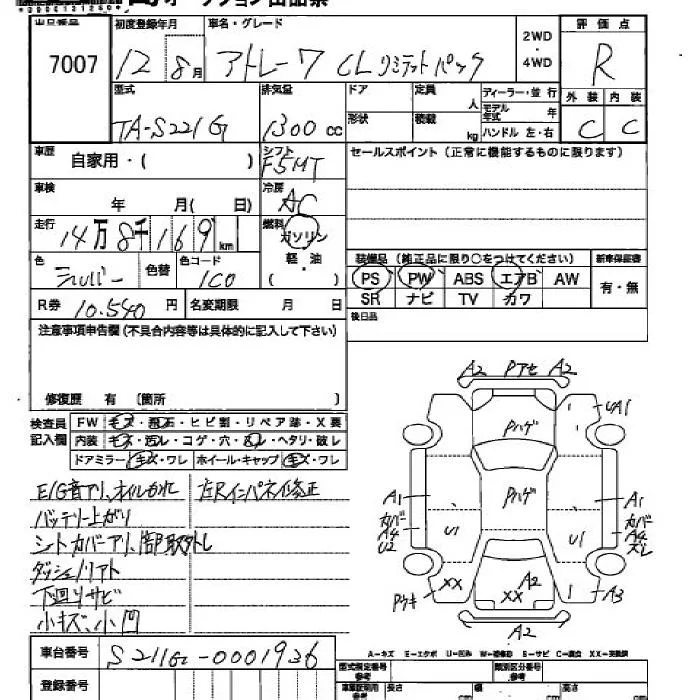 オークション出品票
出品番号 初度登録年月 車名・グレード 2WD・4WD 評価点
7007 12 8月 アトレーワ CL リミテットパック R
型式 排気量 ドア 定員 人 ディーラー・並行 外装 内装
TA-S221G 1300cc 形状 積載 kg モデル年式 年 ハンドル 左・右 C C
車歴 自家用・( ) シフト F5MT セールスポイント(正常に機能するものに限ります)
車検 年 月( 日) 冷房 AC
走行 14万8千169km 燃料 ガソリン 軽・油 ( )
色 シルバー 色替 色コード 1C0 装備品 (純正品に限り○をつけてください) 新車保証書
PS PW ABS エアB AW 有・無
R券 10.540円 名変期限 月 日 SR ナビ TV カワ
注意事項申告欄(不具合内容等は具体的に記入して下さい) 後日品
修復歴 有 〔箇所 〕
検査員記入欄 FW キズ・飛石・ヒビ割・リペア跡・X要
内装 キズ・汚レ・コゲ・穴・ヘタリ・破レ
ドアミラー キズ・ワレ ホイール・キャップ キズ・ワレ
A2 Pアセ A2
Pハゲ UA1
Pハゲ
A1 カバー A4 U2 U1 U1 A1 カバー A4 ズレ
XX A2 XX A3
A2
E/G音アリ、オイルもれ 左Rインパネイ修正
バッテリー上がり
シートカバーアリ、1部取外し
下回りサビ
小キズ、小凹
A-キズ E-エクボ U-凹み W-補修跡 S-サビ C-腐食 XX-交換済
車台番号 S211G-0001936
登録番号
型式指定番号 類別区分番号
長さ cm 幅 cm 高さ cm